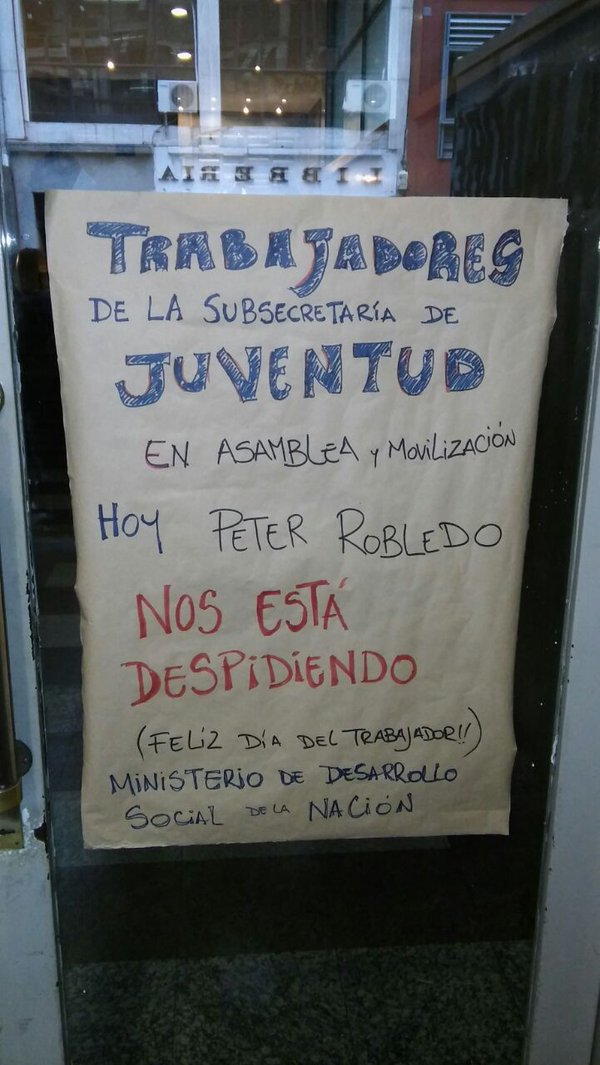 LIBRERIA
TRABAJADORES
DE LA SUBSECRETARÍA DE
JUVENTUD
EN ASAMBLEA y MOVILIZACIÓN
HOY PETER ROBLEDO
NOS ESTÁ
DESPIDIENDO
(FELIZ DÍA DEL TRABAJADOR!!)
MINISTERIO DE DESARROLLO
SOCIAL DE LA NACIÓN